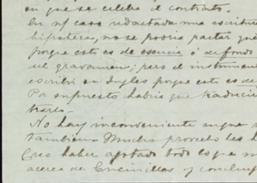 en que se celebre el contrato.
En nf caso redactada una escritura
hipoteca, no se podria pactar que
porque esto es de esencia o de fondo
del gravamen; pero el instrumento
escribir en Ingles porque esto es de
Por supuesto habria que traducir
tarlo.
No hay inconveniente
tambien Mucho
Creo haber agotado todo lo que
acerca de Encinillas y